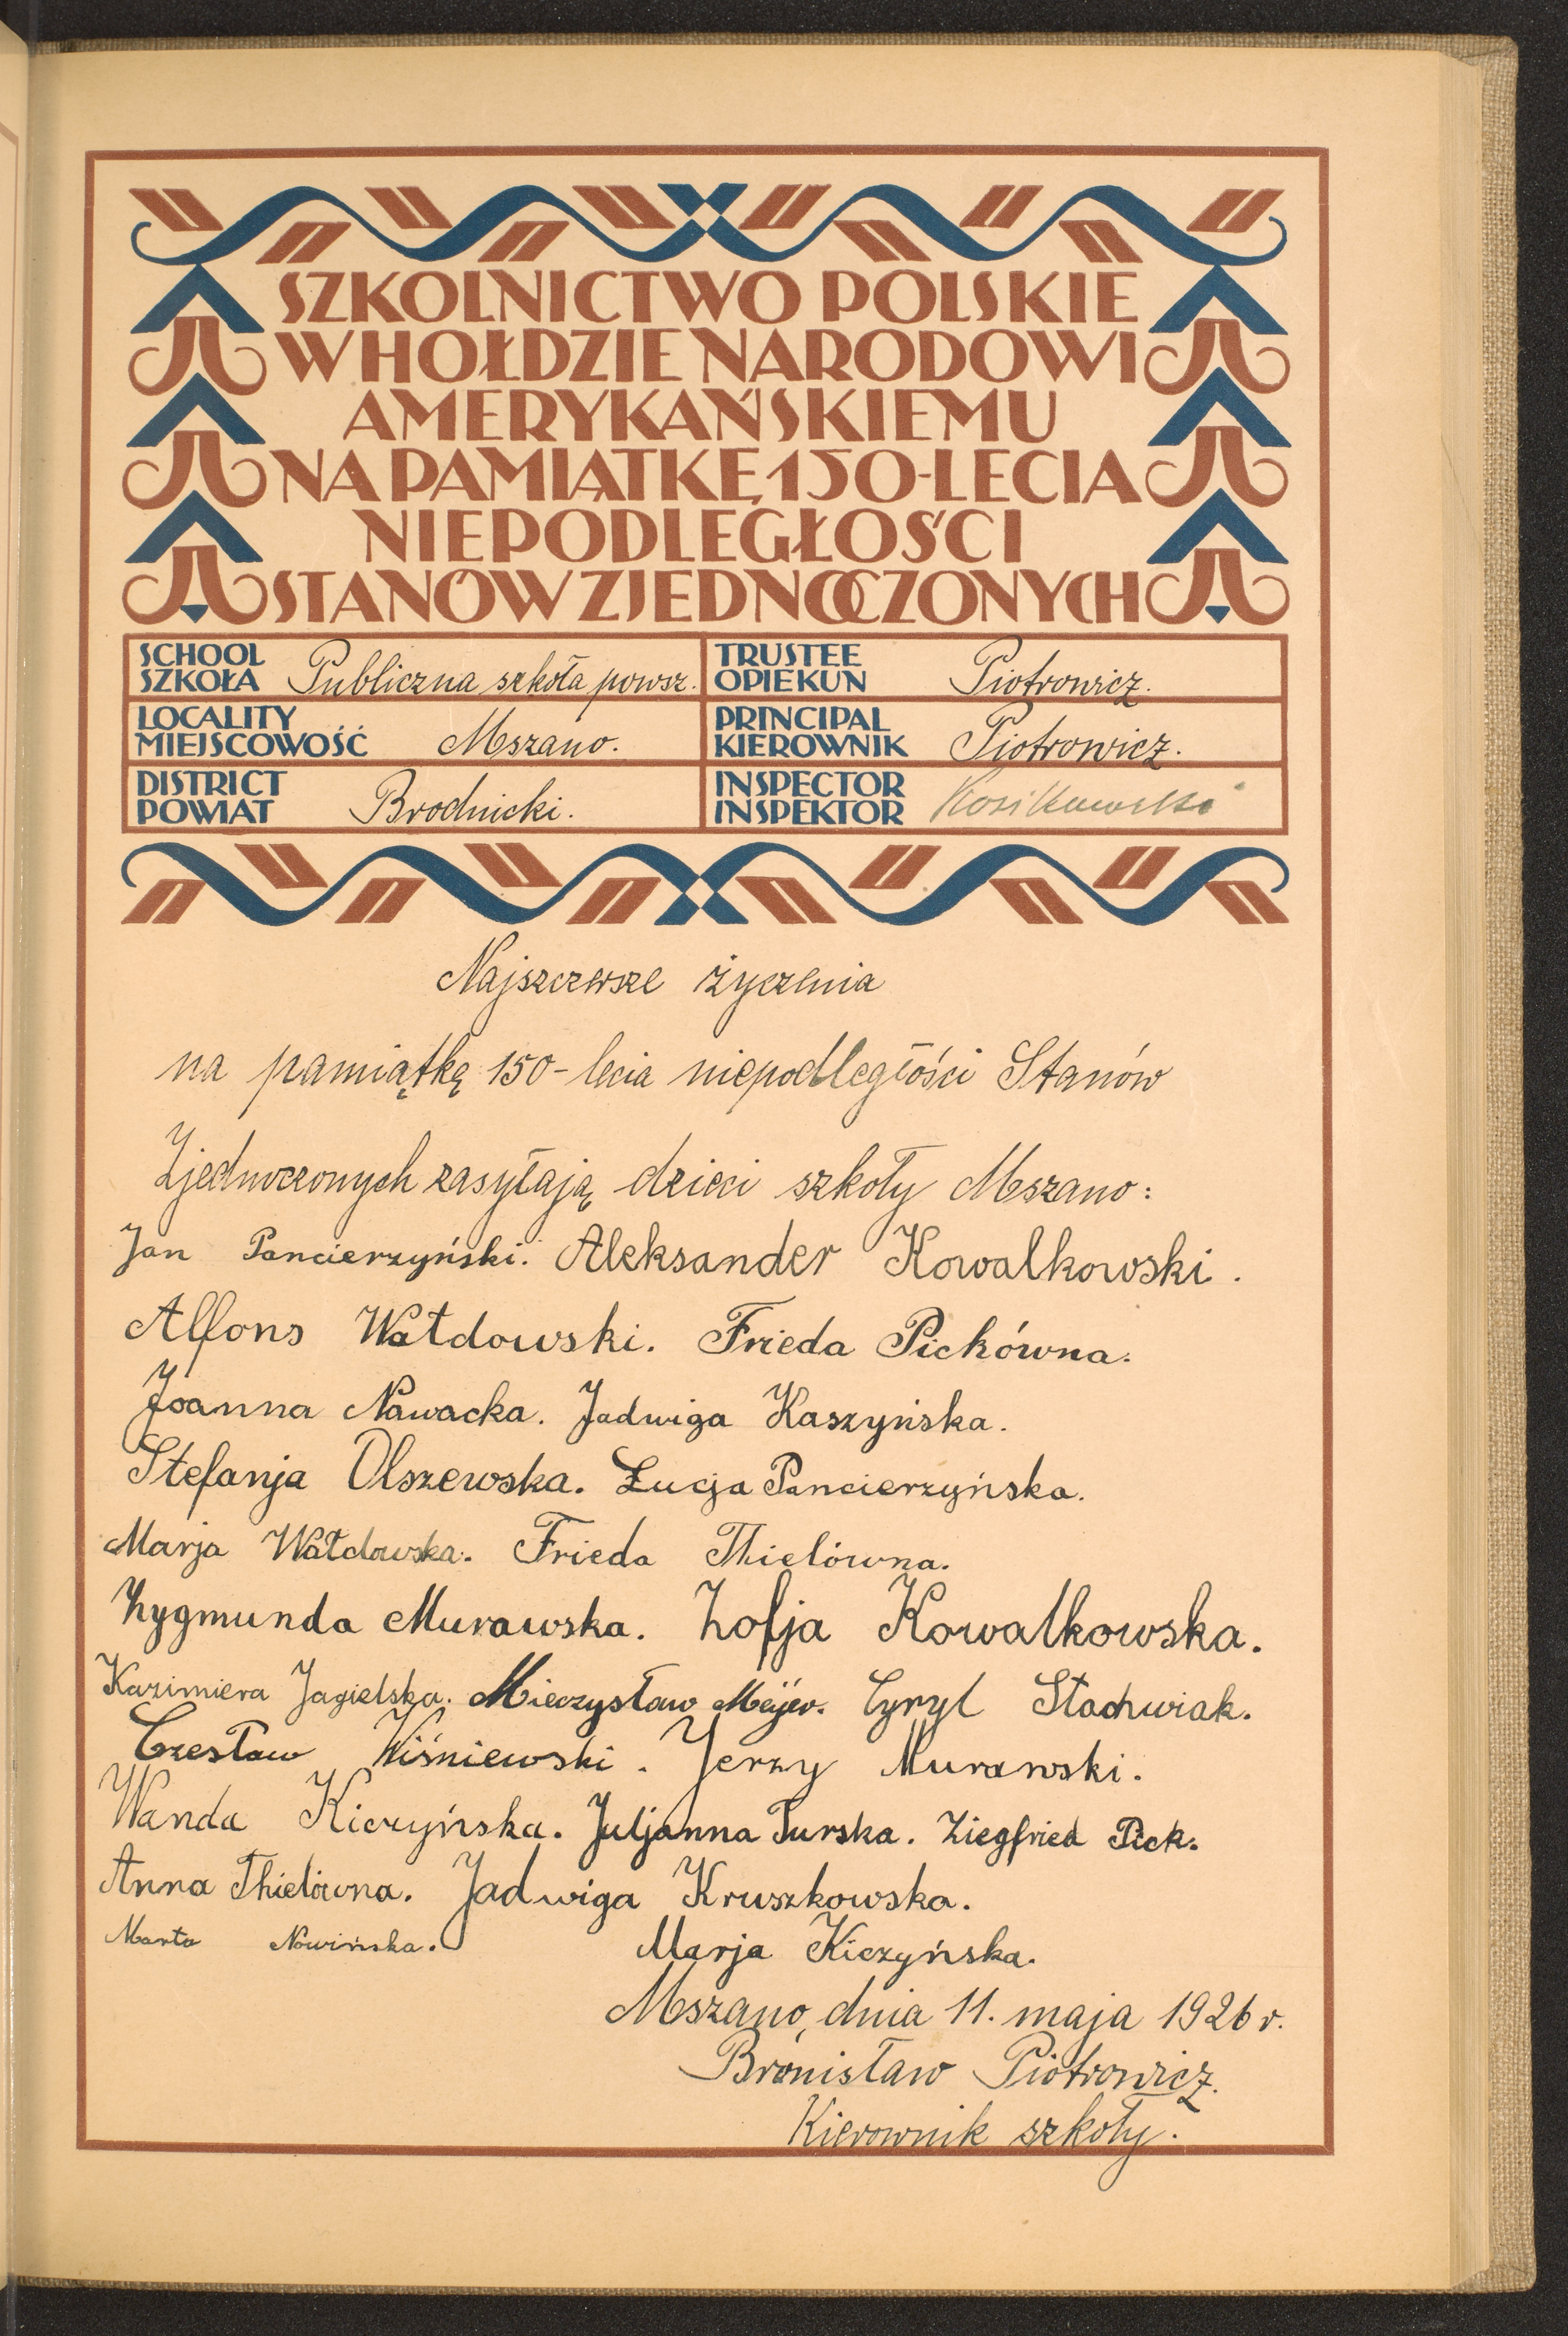 SZKOLNICTWO POLSKIE
W HOŁDZIE NARODOWI
AMERYKAŃSKIEMU
NA PAMIĄTKĘ 150-LECIA
NIEPODLEGŁOŚCI
STANÓW ZJEDNOCZONYCH
SCHOOL
SZKOŁA Publiczna szkoła powsz.
TRUSTEE
OPIEKUN Piotrowicz.
LOCALITY
MIEJSCOWOŚĆ Mszano.
PRINCIPAL
KIEROWNIK Piotrowicz.
DISTRICT
POWIAT Brodnicki.
INSPECTOR
INSPEKTOR
Najszczersze życzenia
na pamiątkę 150-lecia niepodległości Stanów
Zjednoczonych zasyłają dzieci szkoły Mszano:
Jan Pancierzyński. Aleksander Kowalkowski.
Alfons Wałdowski. Frieda Pickówna.
Joanna Nawacka. Jadwiga Kaszyńska.
Stefanja Olszewska. Łucja Pancierzyńska.
Marja Wałdowska. Frieda Thielówna.
Zygmunda Murawska. Zofja Kowalkowska.
Kazimiera Jagielska. Mieczysław Meijer. Cyryl Stachwiak.
Czesław Wiśniewski. Jerzy Murawski.
Wanda Kiczyńska. Juljanna Turska. Ziegfried Pick.
Anna Thielówna. Jadwiga Kruszkowska.
Marta Nowińska. Marja Kiczyńska.
Mszano, dnia 11. maja 1926 r.
Bronisław Piotrowicz.
Kierownik szkoły.